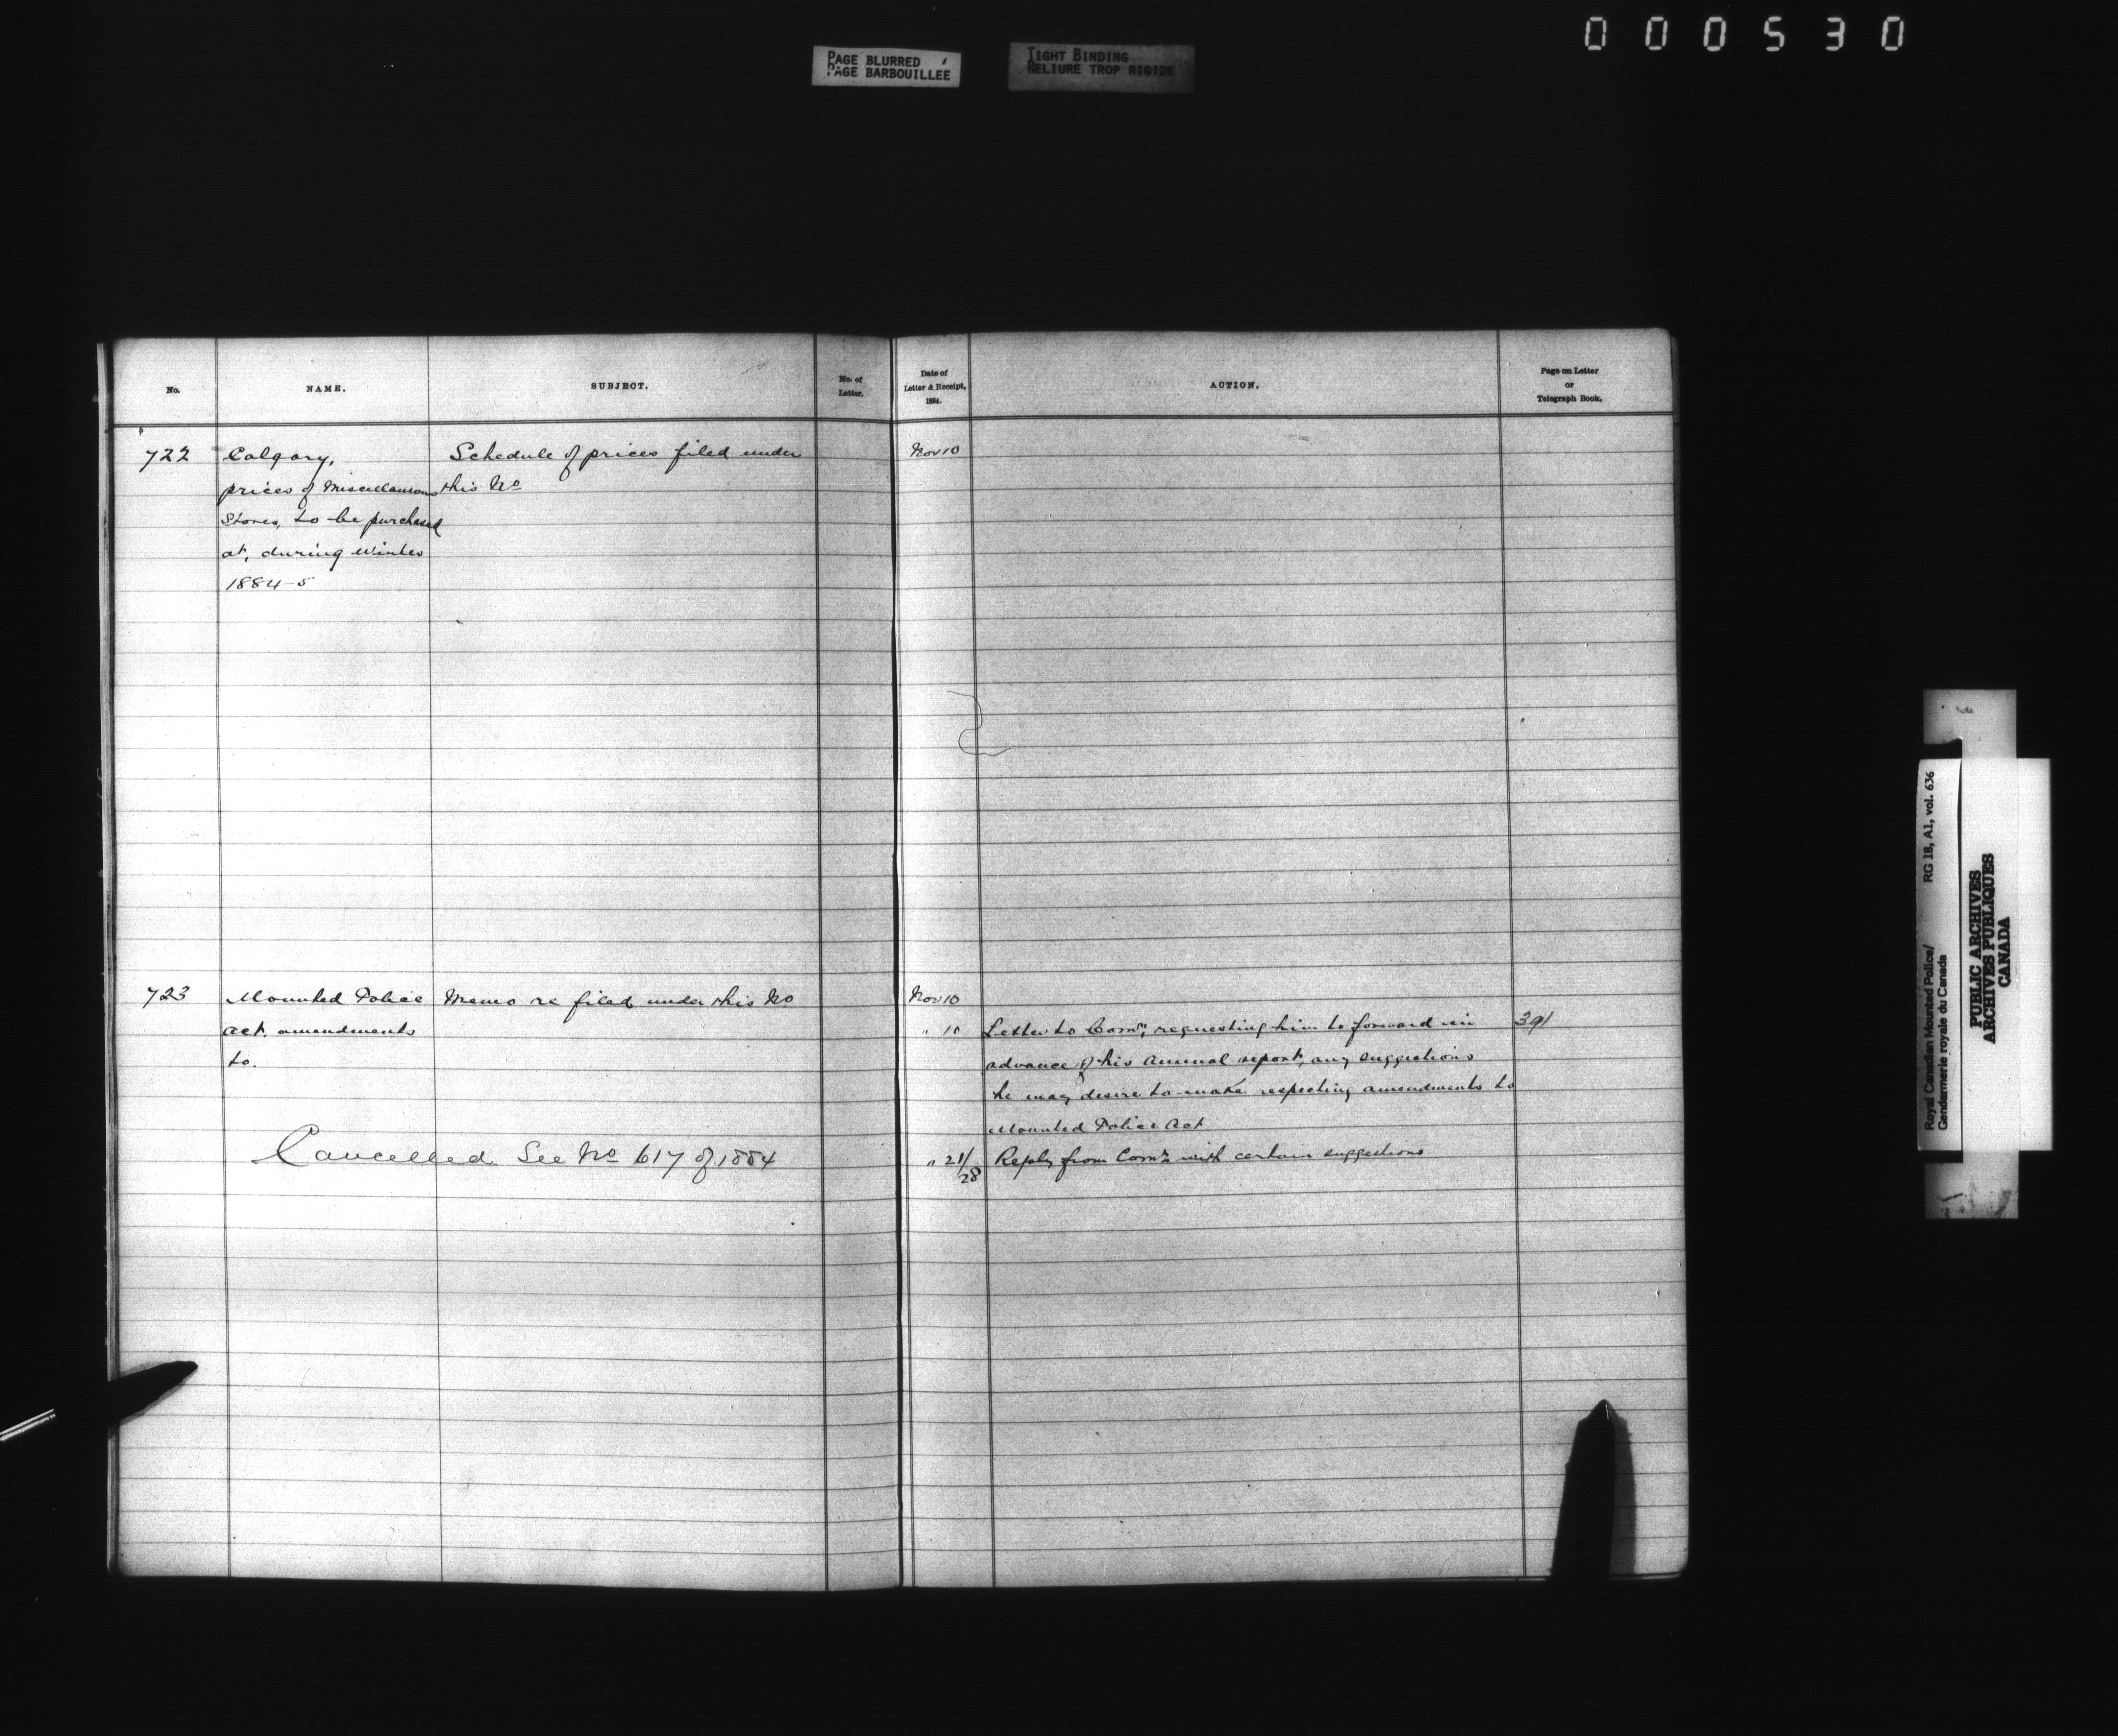 000530
PAGE BLURRED
PAGE BARBOUILLEE
TIGHT BINDING
RELIURE TROP RIGIDE
No.
NAME.
SUBJECT.
No. of
Letter.
Date of
Letter & Receipt,
1884.
ACTION.
Page on Letter
or
Telegraph Book.
722
Calgary,
prices of Miscellaneous
Stores, to be purchased
at, during Winter
1884-5
Schedule of prices filed under
this No
Nov 10
723
Mounted Police
Act. amendments
to.
Memo re filed under this No
Nov 10
" 10
Letter to Comr; requesting him to forward in
advance of his Annual report, any suggestions
he may desire to make respecting amendments to
Mounted Police Act
391
Cancelled. See No 617 of 1884
" 21/28
Reply from Comr with certain suggestions
Royal Canadian Mounted Police/
Gendarmerie royale du Canada
RG 18, A1, vol. 636
PUBLIC ARCHIVES
ARCHIVES PUBLIQUES
CANADA